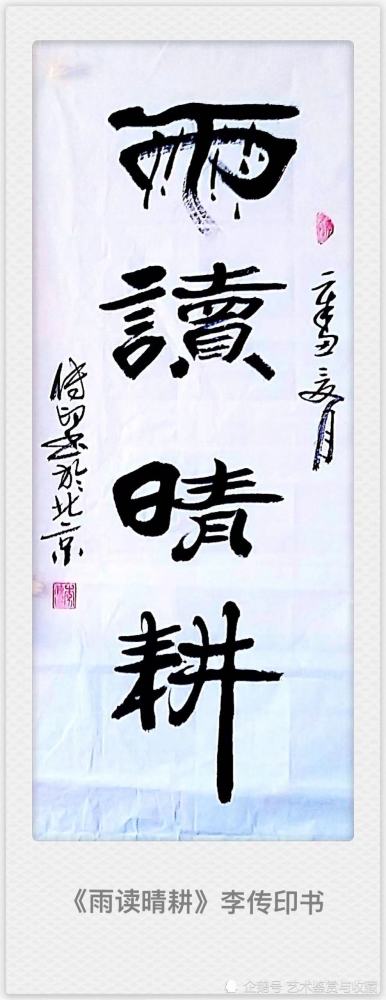 雨讀晴耕
传印书於北京
《雨读晴耕》李传印书
企鹅号 艺术鉴赏与收藏